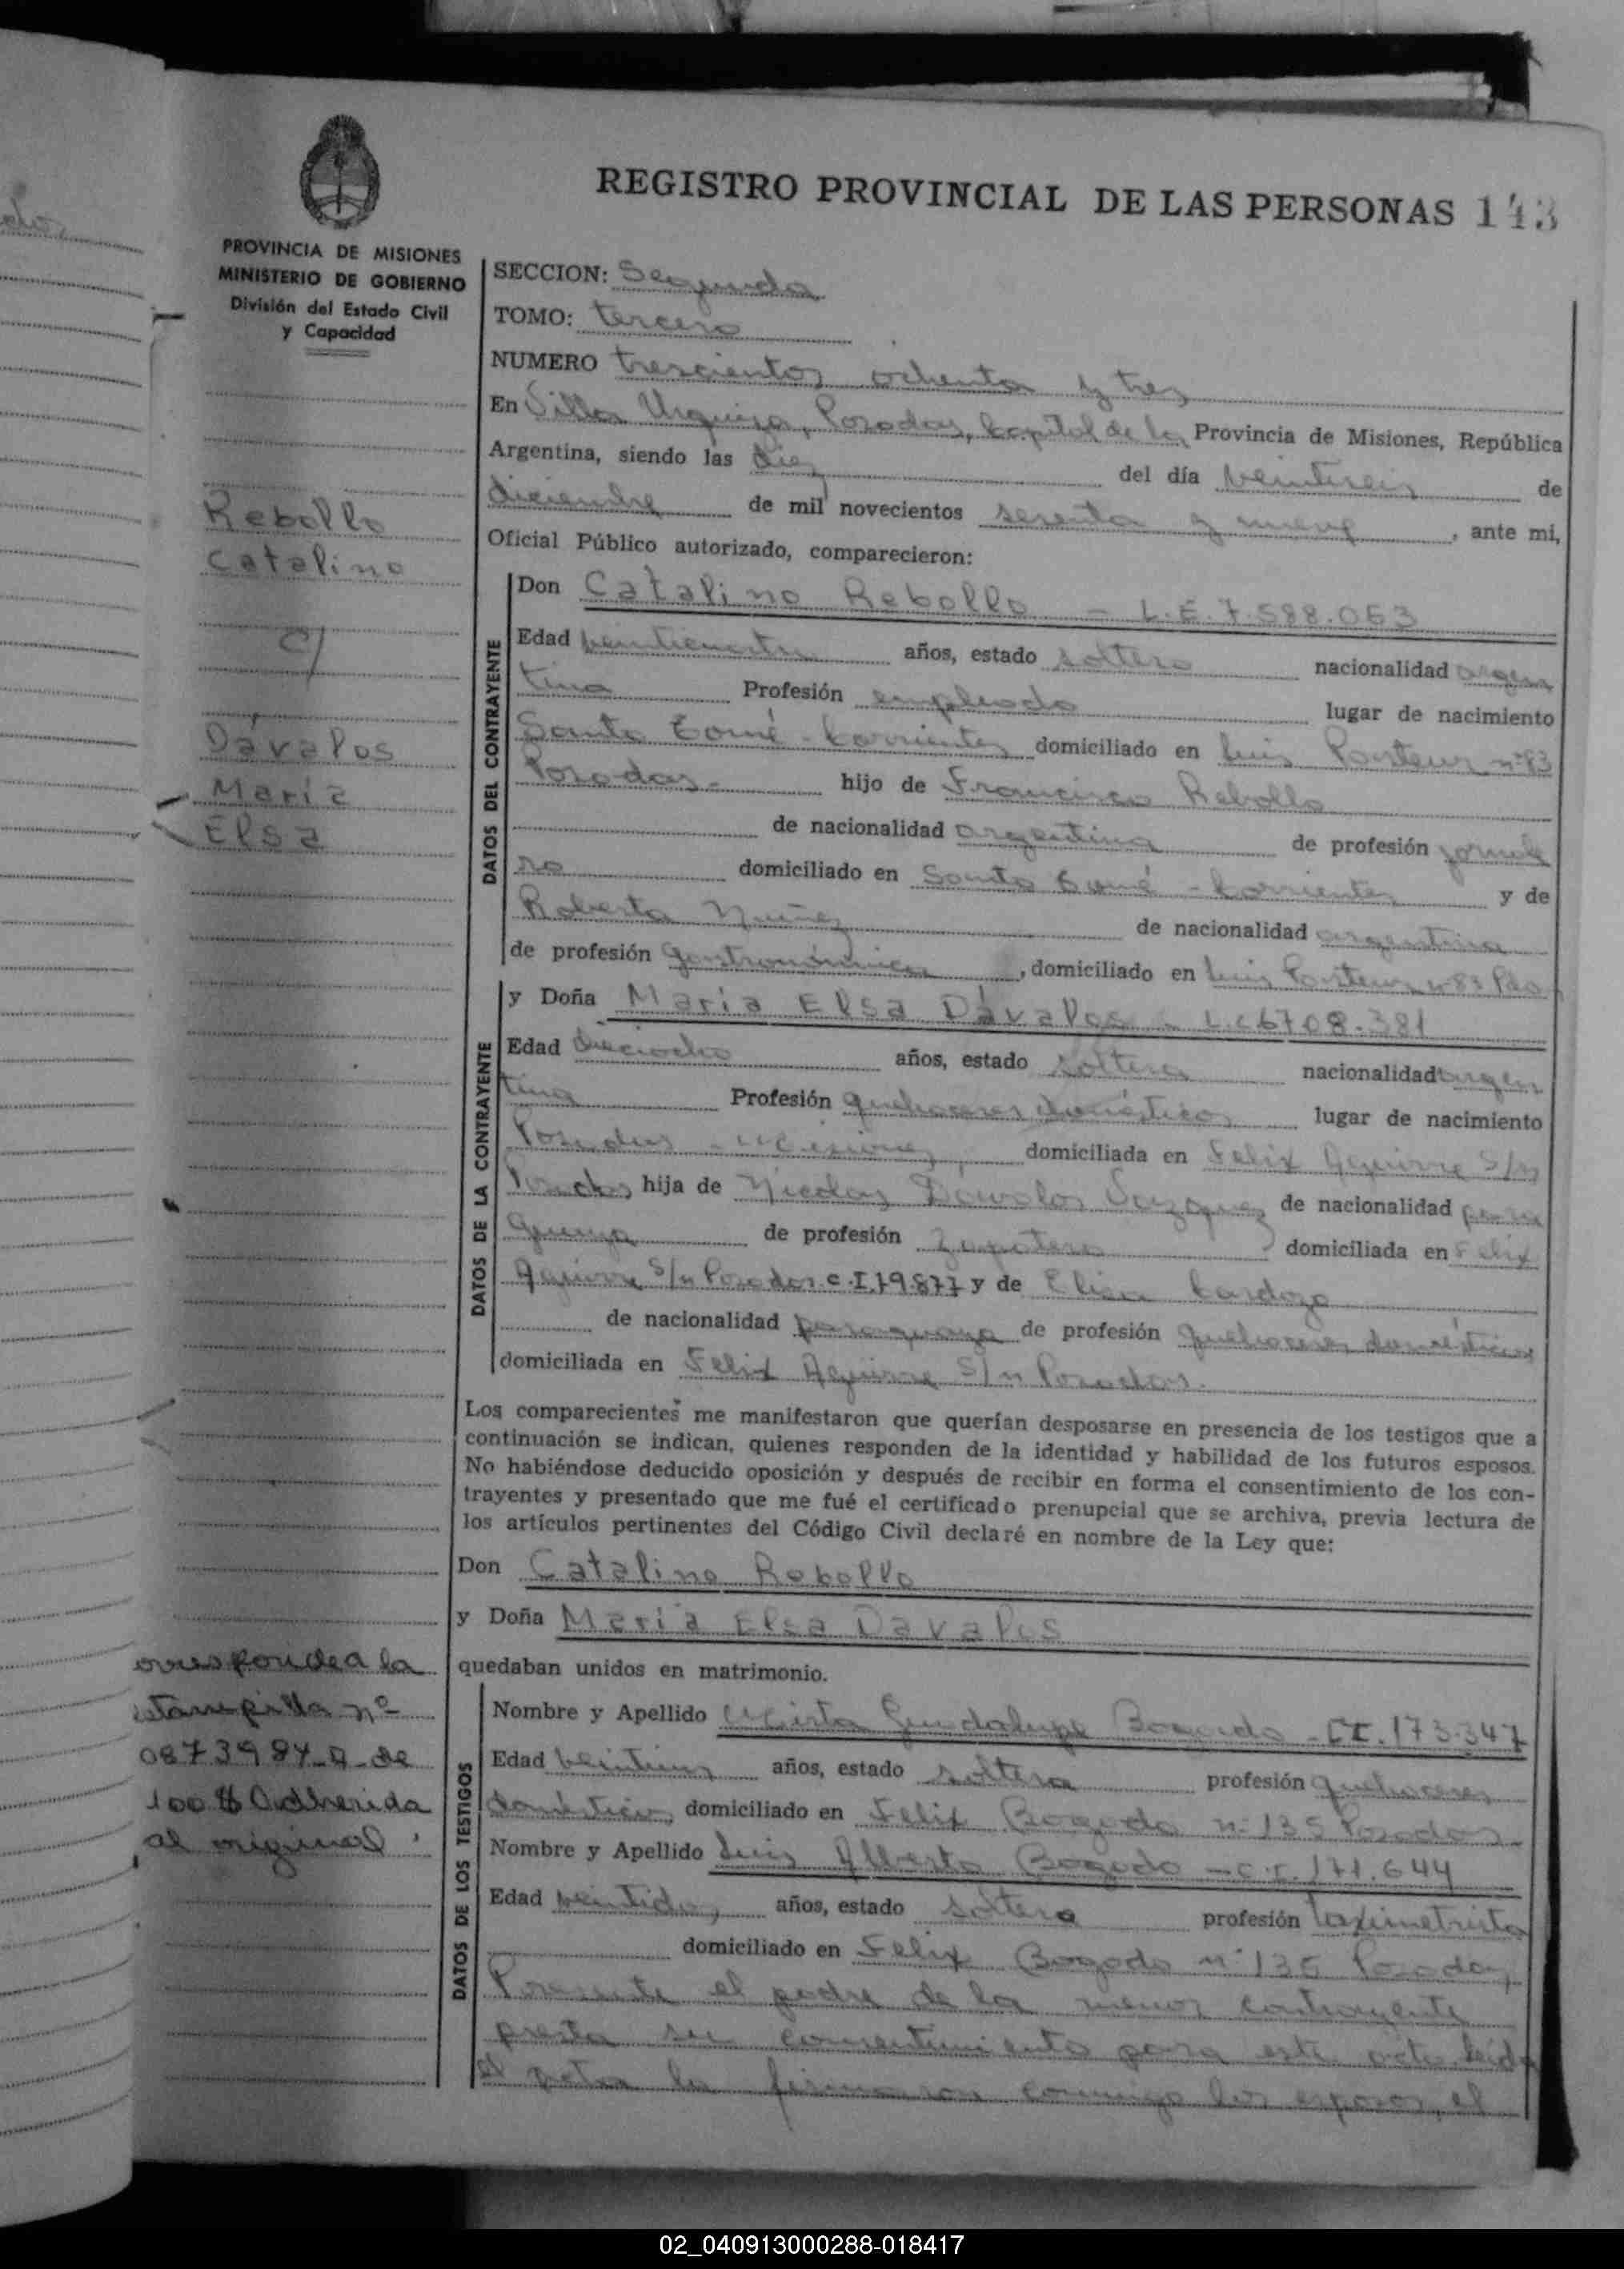 REGISTRO PROVINCIAL DE LAS PERSONAS 143
PROVINCIA DE MISIONES
MINISTERIO DE GOBIERNO
División del Estado Civil
y Capacidad
Rebollo
Catalino
c/
Dávalos
María
Elsa
SECCION: Segunda
TOMO: tercero
NUMERO trescientos ochenta y tres
En Villa Urquiza, Posadas, Capital de la Provincia de Misiones, República
Argentina, siendo las diez del día veintiseis de
diciembre de mil novecientos sesenta y nueve, ante mi,
Oficial Público autorizado, comparecieron:
DATOS DEL CONTRAYENTE
Don Catalino Rebollo - L.E. 7.588.063
Edad veinticuatro años, estado soltero nacionalidad argen
tina Profesión empleado lugar de nacimiento
Santo Tomé - Corrientes domiciliado en Luis Pasteur nº 83
Posadas - hijo de Francisco Rebollo
de nacionalidad argentina de profesión jornale
ro domiciliado en Santo Tomé - Corrientes y de
Roberta Nuñez de nacionalidad argentina
de profesión Gastronómica, domiciliado en Luis Pasteur nº 83 Pdas
DATOS DE LA CONTRAYENTE
y Doña María Elsa Dávalos - L.C 6708.381
Edad dieciocho años, estado soltera nacionalidad argen
tina Profesión quehaceres domésticos lugar de nacimiento
Posadas - Misiones, domiciliada en Felix Aguirre S/n
Posadas hija de Nicolas Dávalos de nacionalidad para
guaya de profesión Zapatero domiciliada en Felix
Aguirre S/n Posadas C.I. 79.877 y de Elisa Cardozo
de nacionalidad paraguaya de profesión quehaceres domésticos
domiciliada en Felix Aguirre S/n Posadas.
Los comparecientes me manifestaron que querían desposarse en presencia de los testigos que a
continuación se indican, quienes responden de la identidad y habilidad de los futuros esposos.
No habiéndose deducido oposición y después de recibir en forma el consentimiento de los con-
trayentes y presentado que me fué el certificado prenupcial que se archiva, previa lectura de
los artículos pertinentes del Código Civil declaré en nombre de la Ley que:
Don Catalino Rebollo
y Doña María Elsa Davalos
quedaban unidos en matrimonio.
orresponde a la
estampilla nº
0873984-A-de
100 $ Adherida
al original
DATOS DE LOS TESTIGOS
Nombre y Apellido Mirta Guadalupe Bogado - C.I. 173.347
Edad veintiun años, estado soltera profesión quehaceres
domésticos domiciliado en Felix Bogado nº 135 Posadas
Nombre y Apellido Luis Alberto Bogado - C.I. 171.644
Edad veintidos, años, estado soltero profesión taximetrista
domiciliado en Felix Bogado nº 135 Posadas,
Presente el padre de la menor contrayente
presta su consentimiento para este acto. Leída
el acta la firmaron conmigo los esposos, el
02_040913000288-018417